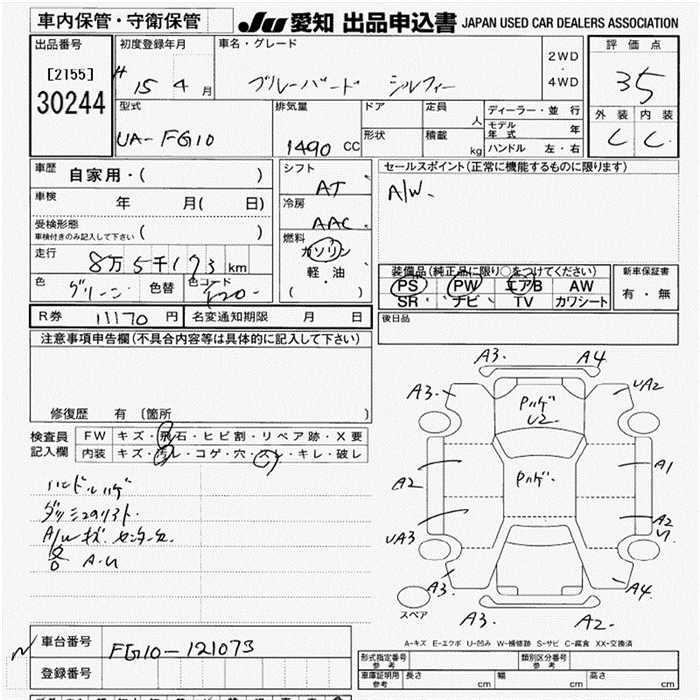 車内保管・守衛保管
JU 愛知 出品申込書 JAPAN USED CAR DEALERS ASSOCIATION
出品番号
[2155]
30244
初度登録年月
H 15 4 月
車名・グレード
ブルーバード シルフィー
2WD
・
4WD
評価点
35
外装 内装
C C
型式
UA-FG10
排気量
1490 CC
ドア
定員
人
形状
積載
kg
ディーラー・並行
モデル年式 年
ハンドル 左・右
車歴 自家用・( )
車検 年 月( 日)
受検形態
車検付きのみ記入して下さい ( )
走行 8万5千173km
色 グリーン 色替 色コード
シフト
AT
冷房
AAC
燃料
ガソリン
軽・油
( )
セールスポイント(正常に機能するものに限ります)
A/W
装備品(純正品に限り○をつけてください)
PS PW エアB AW
SR ナビ TV カワシート
新車保証書
有・無
R券 11170 円 名変通知期限 月 日
後日品
注意事項申告欄(不具合内容等は具体的に記入して下さい)
修復歴 有 〔箇所 〕
検査員記入欄
FW キズ・飛石・ヒビ割・リペア跡・X要
内装 キズ・汚レ・コゲ・穴・スレ・キレ・破レ
ハンドルハゲ
A/Wキズ
A-U
A3. A4
A3. UA2
Pハゲ
U2.
Pハゲ.
A2 A1
UA3 A2
U.
A3 A4
スペア
A3. A2-
A-キズ E-エクボ U-凹み W-補修跡 S-サビ C-腐食 XX-交換済
車台番号 FG10-121073
登録番号
型式指定番号
参考
類別区分番号
参考
車庫証明用
参考
長さ cm 幅 cm 高さ cm